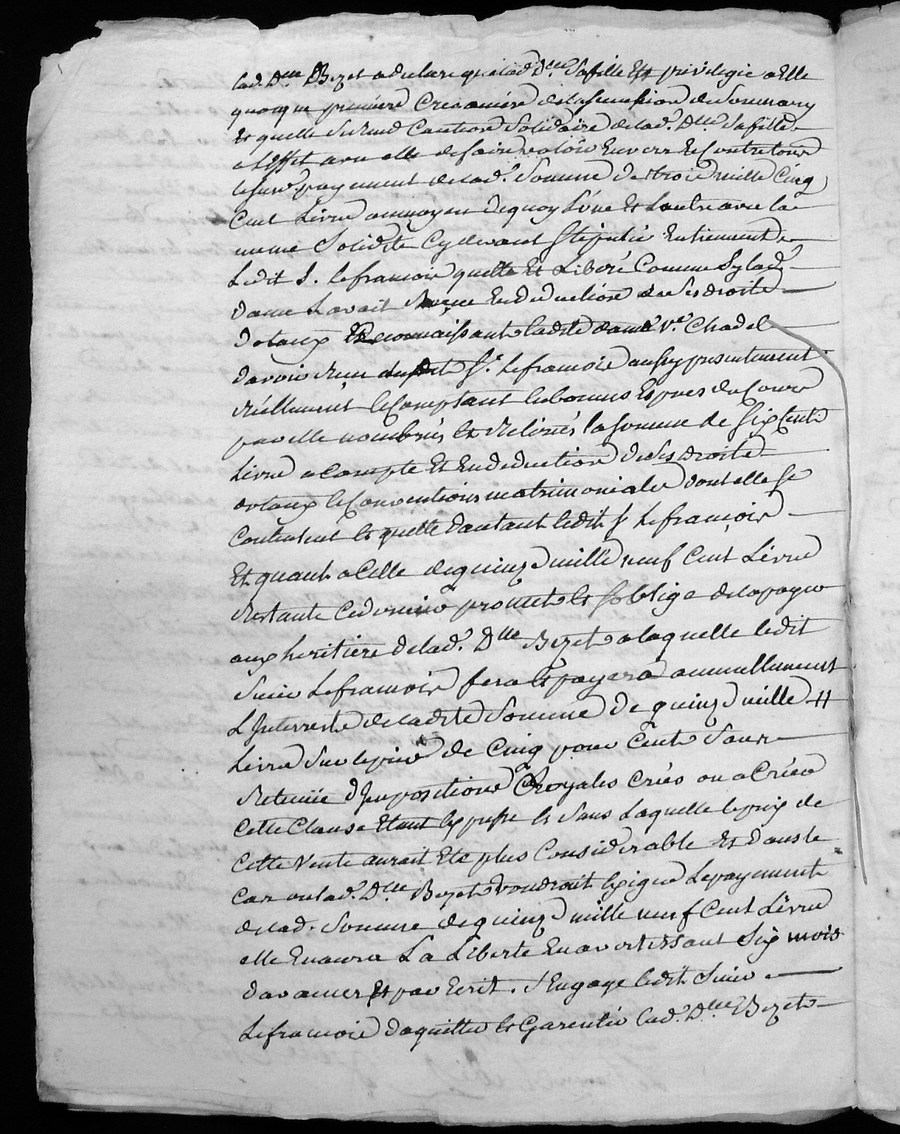 lad. Dlle Bizet a declaré que lad. Dlle sa fille Est privilegié a Elle
quoique premiere Creancière de la succession de Sommary
Et quelle Se rend Caution Solidaire de lad. Dlle Sa fille
a leffet avec elle de faire valoir Envers Et Contre tous
le payement de lad. Somme de trois mille Cinq
Cent Livre au moyen de quoy L'une Et Lautre avec la
meme Solidité Cy devant Stipulée tiennent
Ledit S. lefrancois quitte Et Libéré Comme Sy lad.
dame Lavait Reçue En deduction de Ses droits
dotaux Reconnaissant ladite dame Ve. Chadel
davoir reçu dudit Sr. Lefrancois aussy presentement
réellement Et Comptant En bonnes Espces du Cours
par elle nombrés Et retirés la somme de Six Cent
Livre a Compte Et En deduction de Ses droits
dotaux Et Conventions matrimoniales dont elle Se
Contentent Et quitte dautant ledit Sr Lefrançois
Et quant a Celle de quinze mille neuf Cent Livre
restante Ce dernier promet Et Soblige de la payer
aux heritiers de lad. Dlle Bizet a laquelle ledit
Sieur Lefrancois fera Et payera annuellement
L'Interrest de ladite Somme de quinze mille
Livre Sur le pied de Cinq pour Cent Sans
Retenüe d'Impositions Royales Crées ou a Créer
Cette Clause Etant Expresse Et Sans Laquelle le prix de
Cette Vente aurait Eté plus Considerable Et dans le
Cas ou lad. Dlle Bizet voudroit Exiger Le payement
de lad. Somme de quinze mille neuf Cent Livre
elle En aura La Liberté En avertissant Six mois
davance Et par Ecrit. S'Engage ledit Sieur
Lefrancois daquitter Et Garentir lad. Dlle Bizet